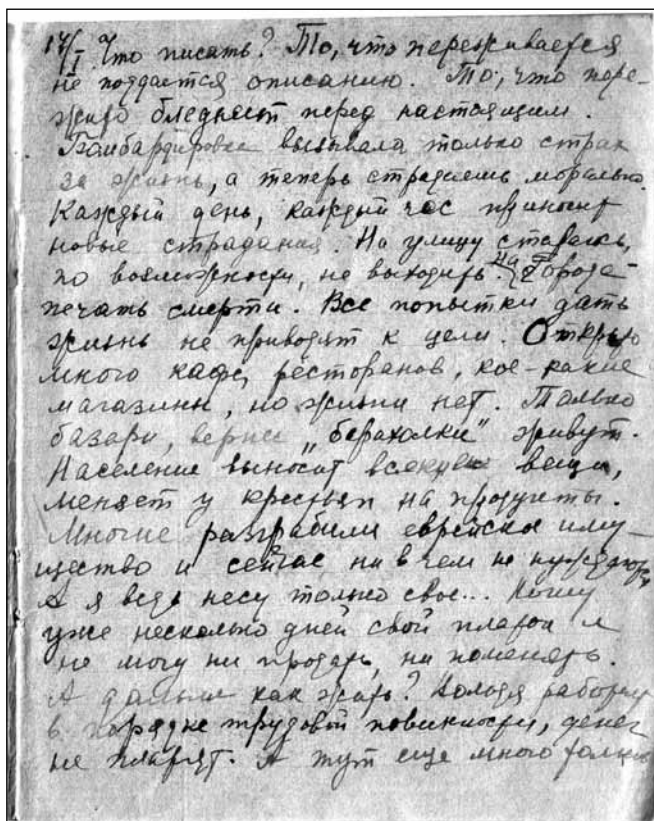 17/I Что писать? То, что переживается
не поддается описанию. То, что пере-
жито бледнеет перед настоящим.
Бомбардировка вызывала только страх
за жизнь, а теперь страдаешь морально.
Каждый день, каждый час приносит
новые страдания. На улицу стараюсь,
по возможности, не выходить. На городе
печать смерти. Все попытки дать
жизнь не приводят к цели. Открыто
много кафе, ресторанов, кое-какие
магазины, но жизни нет. Только
базары, вернее „барахолки" живут.
Население выносит всякие вещи,
меняет у крестьян на продукты.
Многие разграбили еврейское иму-
щество и сейчас ни в чем не нуждаются
А я ведь несу только свое... Ношу
уже несколько дней свой платок и
не могу ни продать, ни поменять.
А дальше как жить? Володя работает
в порядке трудовой повинности, денег
не платят. А тут еще много